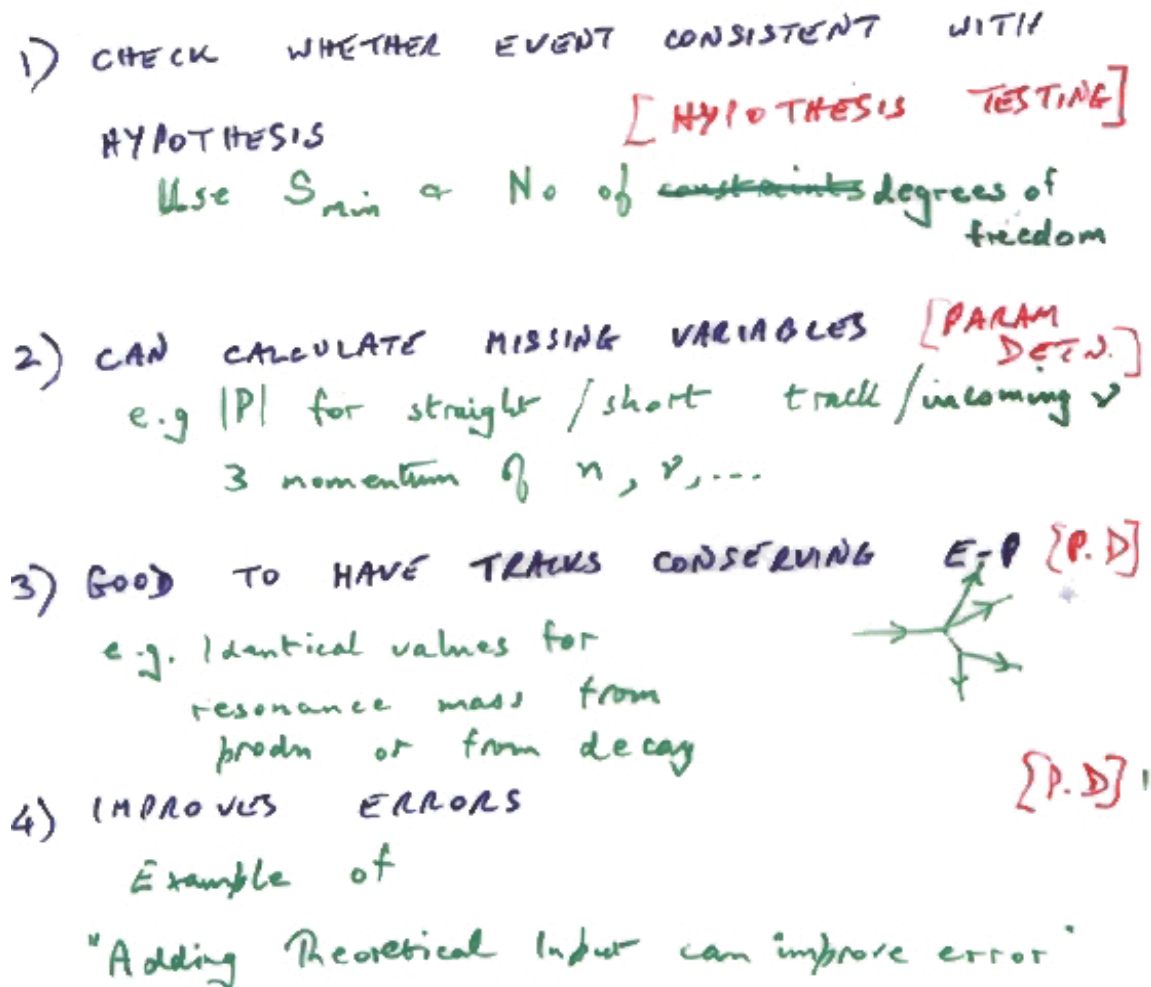 1) CHECK WHETHER EVENT CONSISTENT WITH
HYPOTHESIS [HYPOTHESIS TESTING]
Use Smin & No of constraints degrees of
freedom
2) CAN CALCULATE MISSING VARIABLES [PARAM
DETN.]
e.g |P| for straight / short track / incoming ν
3 momentum of n, ν, ...
3) GOOD TO HAVE TRACKS CONSERVING E-P [P.D]
e.g. Identical values for
resonance mass from
prodn or from decay
4) IMPROVES ERRORS [P.D]
Example of
"Adding Theoretical Input can improve error"